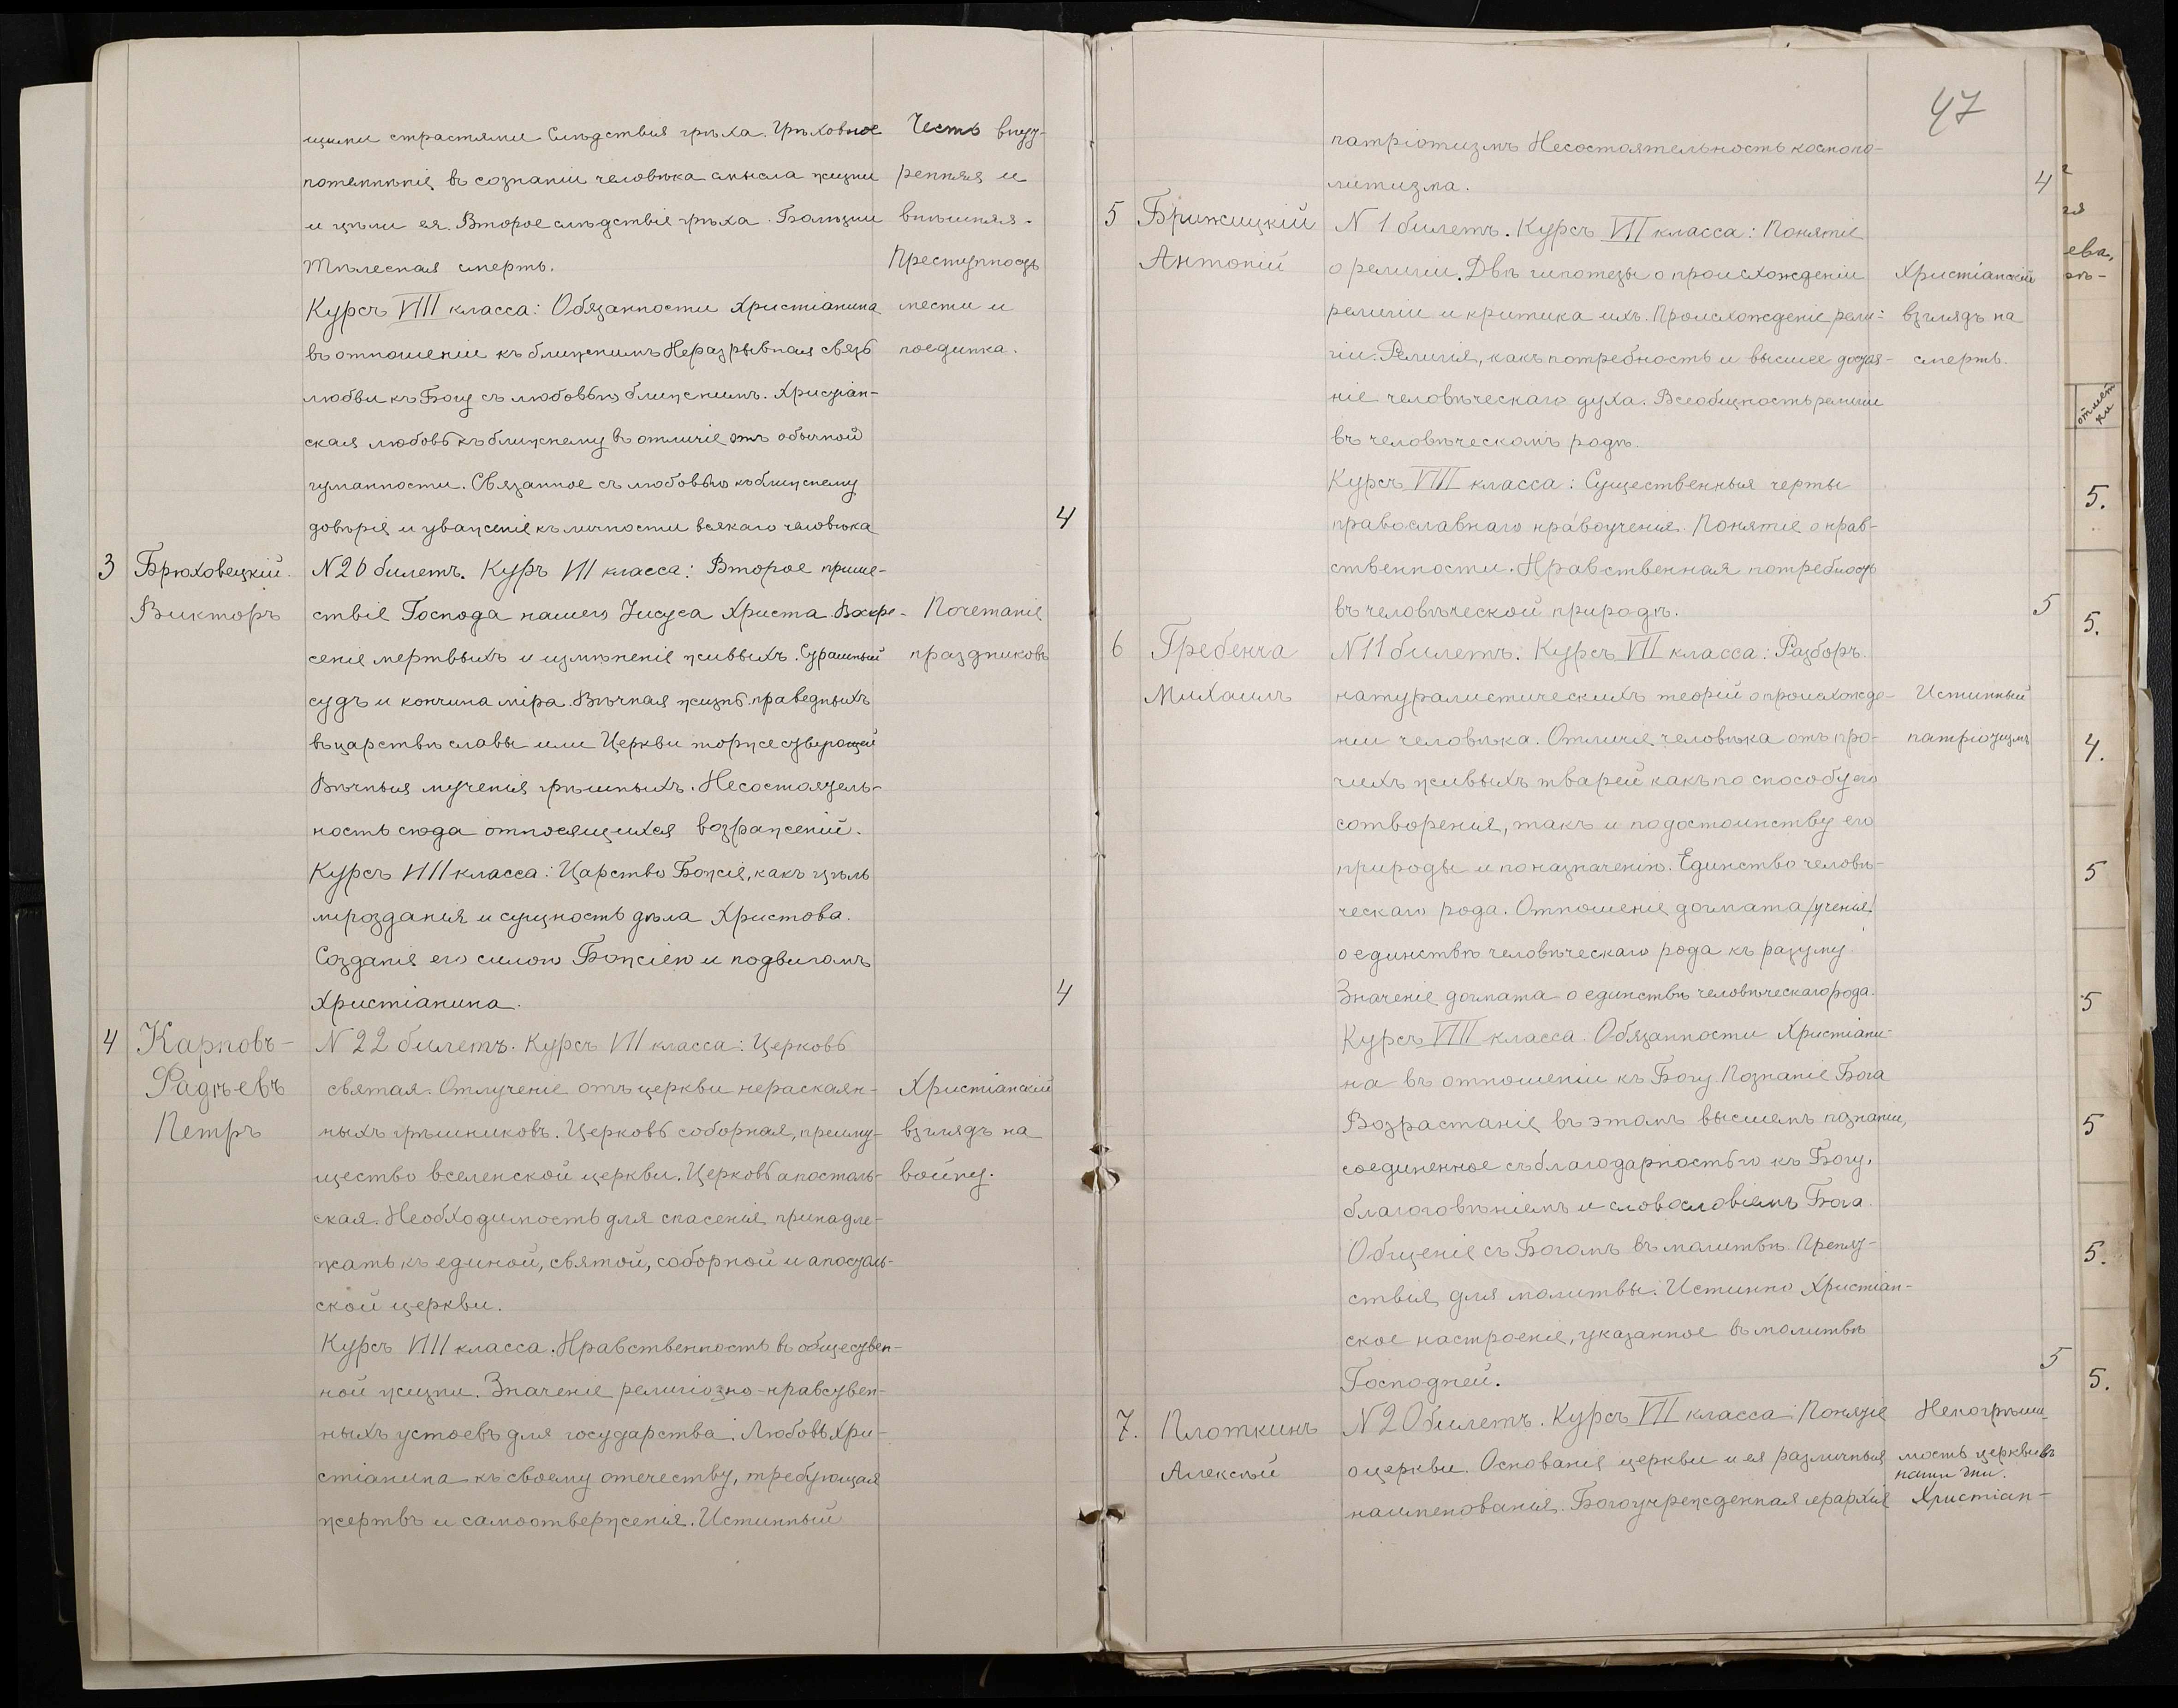 щими страстями Слѣдствія грѣха. Грѣховное
потемнѣніе въ сознаніи человѣка смысла жизни
и цѣли ея. Второе слѣдствіе грѣха. Болѣзни
Тѣлесная смерть.
Курсъ VIII класса: Обязанности христіанина
въ отношеніи къ ближнимъ Неразрывная связь
любви къ Богу съ любовью ближнимъ. Христіан-
ская любовь къ ближнему въ отличіе отъ обычной
гуманности. Связанное съ любовью къ ближнему
довѣріе и уваженіе къ личности всякаго человѣка
Честь внут-
ренняя и
внѣшняя.
Преступность
мести и
поединка.
4
3 Брюховецкій
Викторъ
N 26 билетъ. Куръ VII класса: Второе прише-
ствіе Господа нашего Іисуса Христа. Воскре-
сеніе мертвыхъ и измѣненіе живыхъ. Страшный
судъ и кончина міра. Вѣчная жизнь праведныхъ
въ царствѣ славы или Церкви торжествующей
Вѣчныя мученія грѣшныхъ. Несостоятель-
ность сюда относящихся возраженій.
Курсъ VIII класса: Царство Божіе, какъ цѣль
мірозданія и сущность дѣла Христова.
Созданіе его силою Божіею и подвигомъ
христіанина.
Почетаніе
праздниковъ
4
4 Карповъ-
Фадѣевъ
Петръ
N 22 билетъ. Курсъ VII класса: Церковь
святая. Отлученіе отъ церкви нераскаян-
ныхъ грѣшниковъ. Церковь соборная, преиму-
щество вселенской церкви. Церковь апостоль-
ская. Необходимость для спасенія принадле-
жать къ единой, святой, соборной и апостоль-
ской церкви.
Курсъ VIII класса. Нравственность въ обществен-
ной жизни. Значеніе религіозно-нравствен-
ныхъ устоевъ для государства. Любовь хри-
стіанина къ своему отечеству, требующая
жертвъ и самоотверженія. Истинный
Христіанскій
взглядъ на
войну.
47
патріотизмъ Несостоятельность космопо-
литизма.
4
5 Брижицкій
Антоній
N 1 билетъ. Курсъ VII класса: Понятіе
о религіи. Двѣ гипотезы о происхожденіи
религіи и критика ихъ. Происхожденіе рели-
гіи. Религія, какъ потребность и высшее достоя-
ніе человѣческаго духа. Всеобщность религіи
въ человѣческомъ родѣ.
Курсъ VIII класса: Существенныя черты
православнаго нравоученія. Понятіе о нрав-
ственности. Нравственная потребность
въ человѣческой природѣ.
Христіанскій
взглядъ на
смерть.
5
6 Гребенча
Михаилъ
N 11 билетъ. Курсъ VII класса: Разборъ
натуралистическихъ теорій о происхожде-
ніи человѣка. Отличіе человѣка отъ про-
чихъ живыхъ тварей какъ по способу его
сотворенія, такъ и по достоинству его
природы и по назначенію. Единство человѣ-
ческаго рода. Отношеніе догмата /ученія/
о единствѣ человѣческаго рода къ разуму
Значеніе догмата о единствѣ человѣческаго рода.
Курсъ VIII класса: Обязанности Христіани-
на въ отношеніи къ Богу. Познаніе Бога
Возрастаніе въ этомъ высшемъ познаніи,
соединенное съ благодарностью къ Богу,
благоговѣніемъ и словословіемъ Бога.
Общеніе съ Богомъ въ молитвѣ. Препят-
ствія для молитвы. Истинно Христіан-
ское настроеніе, указанное въ молитвѣ
Господней.
Истинный
патріотизмъ
5
7. Плоткинъ
Алексѣй
N 20 билетъ. Курсъ VII класса: Понятіе
о церкви. Основаніе церкви и ея различныя
наименованія. Богоучрежденная іерархія
Непогрѣши-
мость церкви въ
наши дни.
Христіан-
ева,
отмѣт
ки
5.
5.
4.
5
5
5
5.
5.